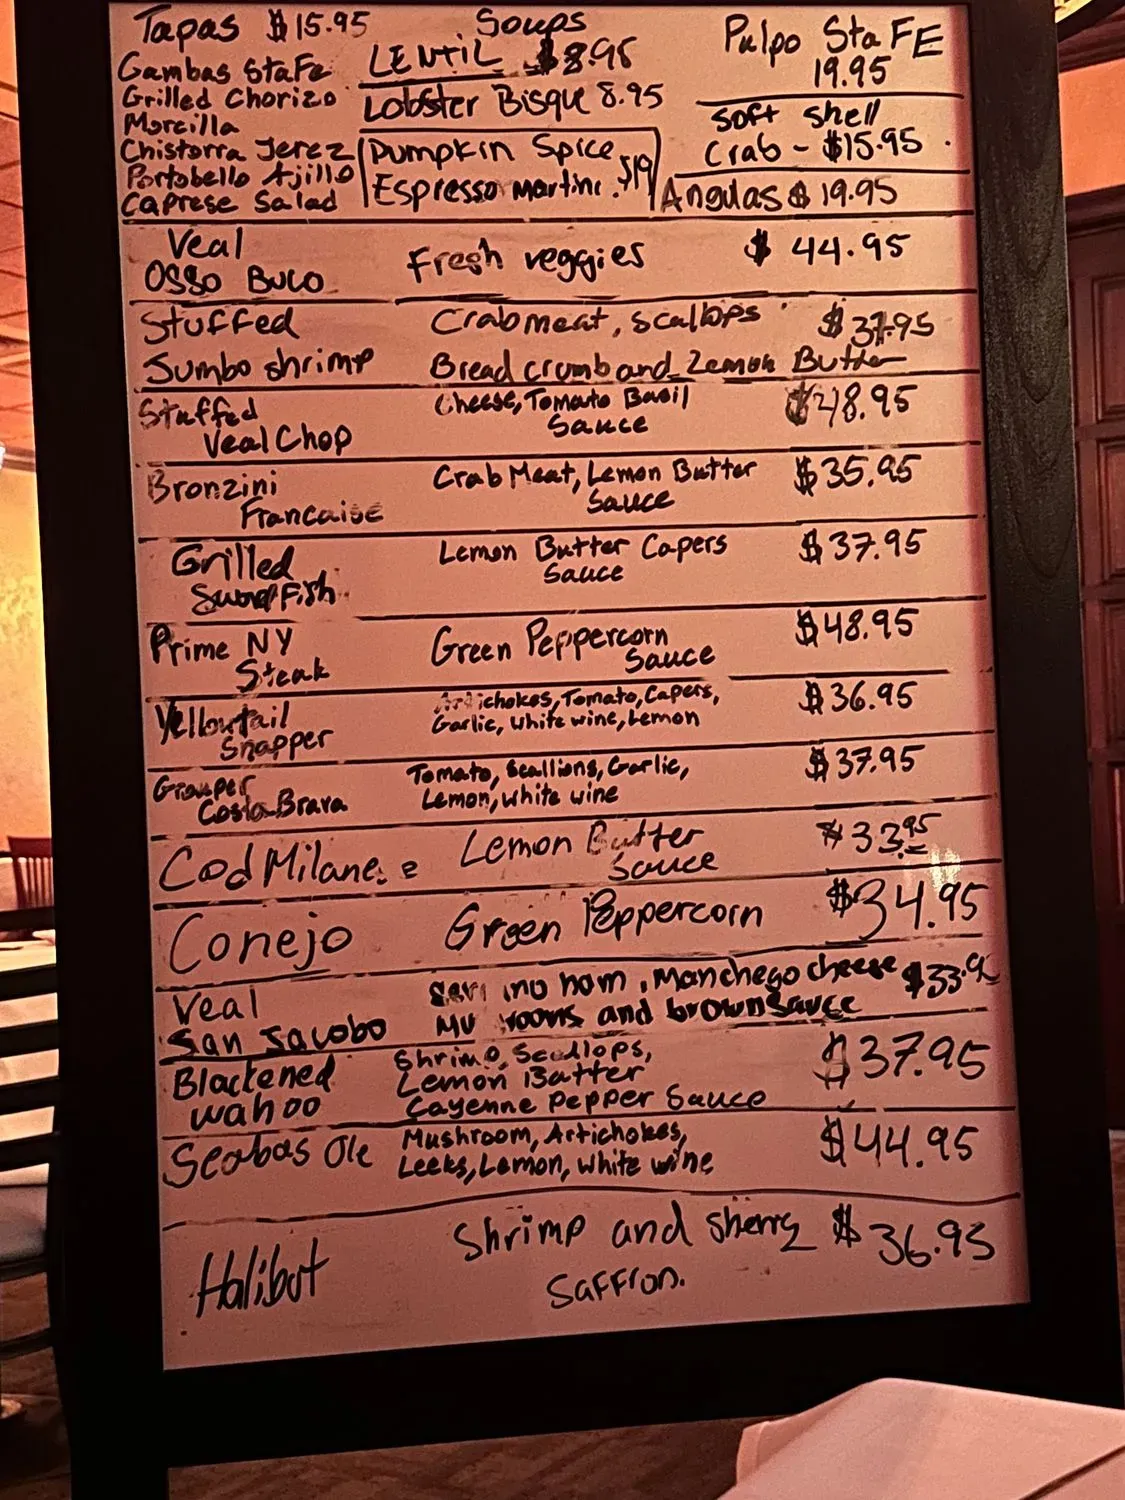 Tapas $15.95
Gambas StaFe
Grilled Chorizo
Morcilla
Chistorra Jerez
Portobello Ajillo
Caprese Salad
Soups
LENTIL $8.95
Lobster Bisque 8.95
Pumpkin Spice
Espresso martini $19
Pulpo Sta FE
19.95
Soft Shell
Crab - $15.95
Angulas $ 19.95
Veal Fresh veggies $ 44.95
OSSO BUCO
Stuffed Crabmeat, Scallops $37.95
Jumbo shrimp Bread crumb and Lemon Butter
Stuffed Cheese, Tomato Basil $48.95
Veal Chop Sauce
Bronzini Crab Meat, Lemon Butter $35.95
Francaise Sauce
Grilled Lemon Butter Capers $37.95
SwordFish Sauce
Prime NY Green Peppercorn $48.95
Steak Sauce
Yellowtail Artichokes, Tomato, Capers, $36.95
Snapper Garlic, White wine, Lemon
Grouper Tomato, Scallions, Garlic, $37.95
Costa Brava Lemon, White wine
Cod Milanese Lemon Butter $33.95
Sauce
Conejo Green Peppercorn $34.95
Veal ham, Manchego cheese
San Jacobo and brown Sauce
Blackened Shrimp, Scallops, $37.95
wahoo Lemon Butter
Cayenne Pepper Sauce
Seabas Ole Mushroom, Artichokes, $44.95
Leeks, Lemon, White wine
Halibut Shrimp and Sherry $36.95
Saffron.